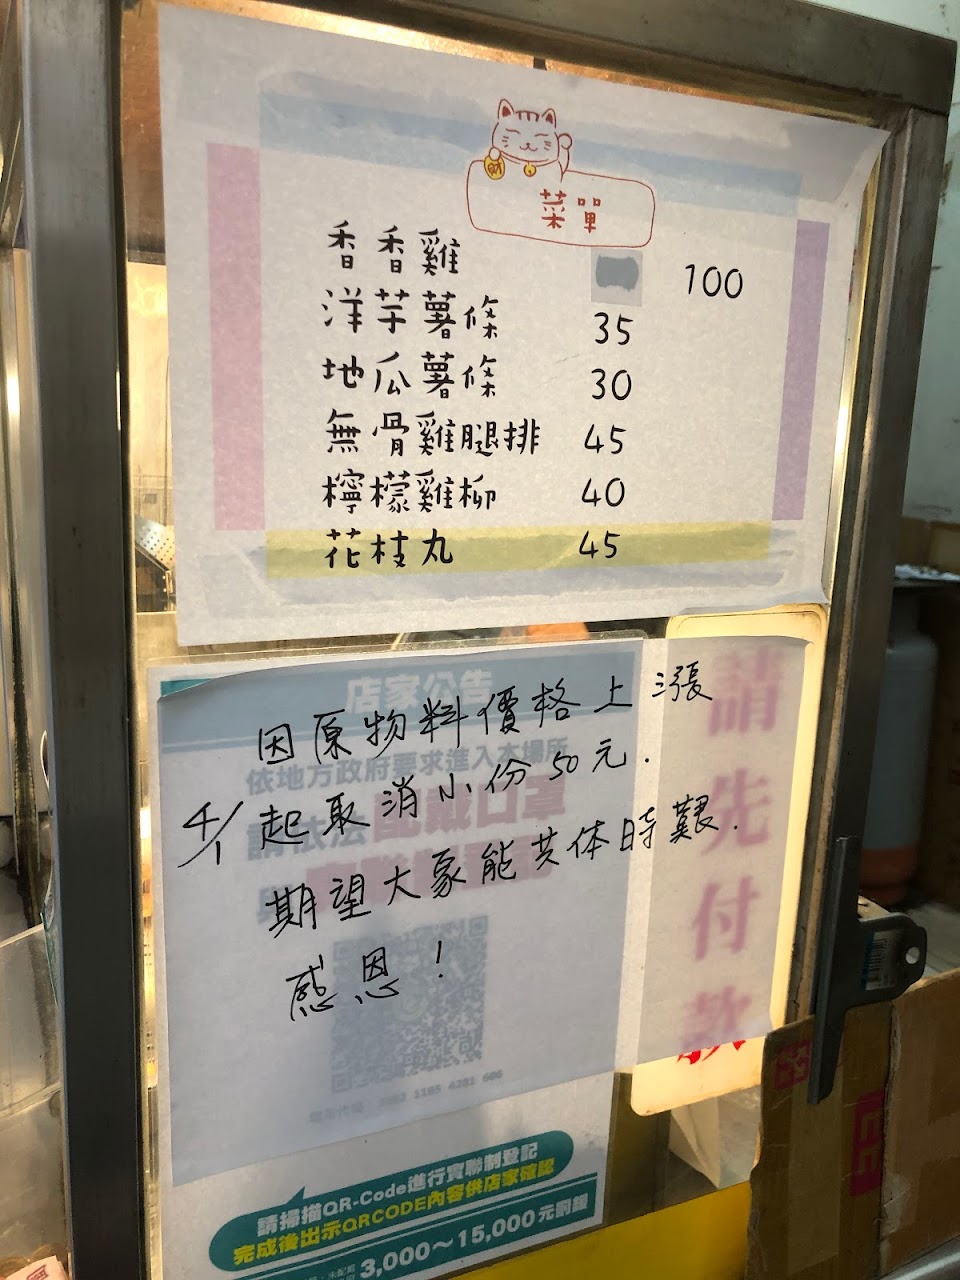 財
菜單
香香雞 100
洋芋薯條 35
地瓜薯條 30
無骨雞腿排 45
檸檬雞柳 40
花枝丸 45
因原物料價格上漲
4/1 起取消小份50元.
期望大家能共体時艱.
感恩!
店家公告
依地方政府要求進入本場所
請依法配戴口罩
請先付款
請掃描QR-Code進行實聯制登記
完成後出示QRCODE內容供店家確認
3,000~15,000元罰鍰